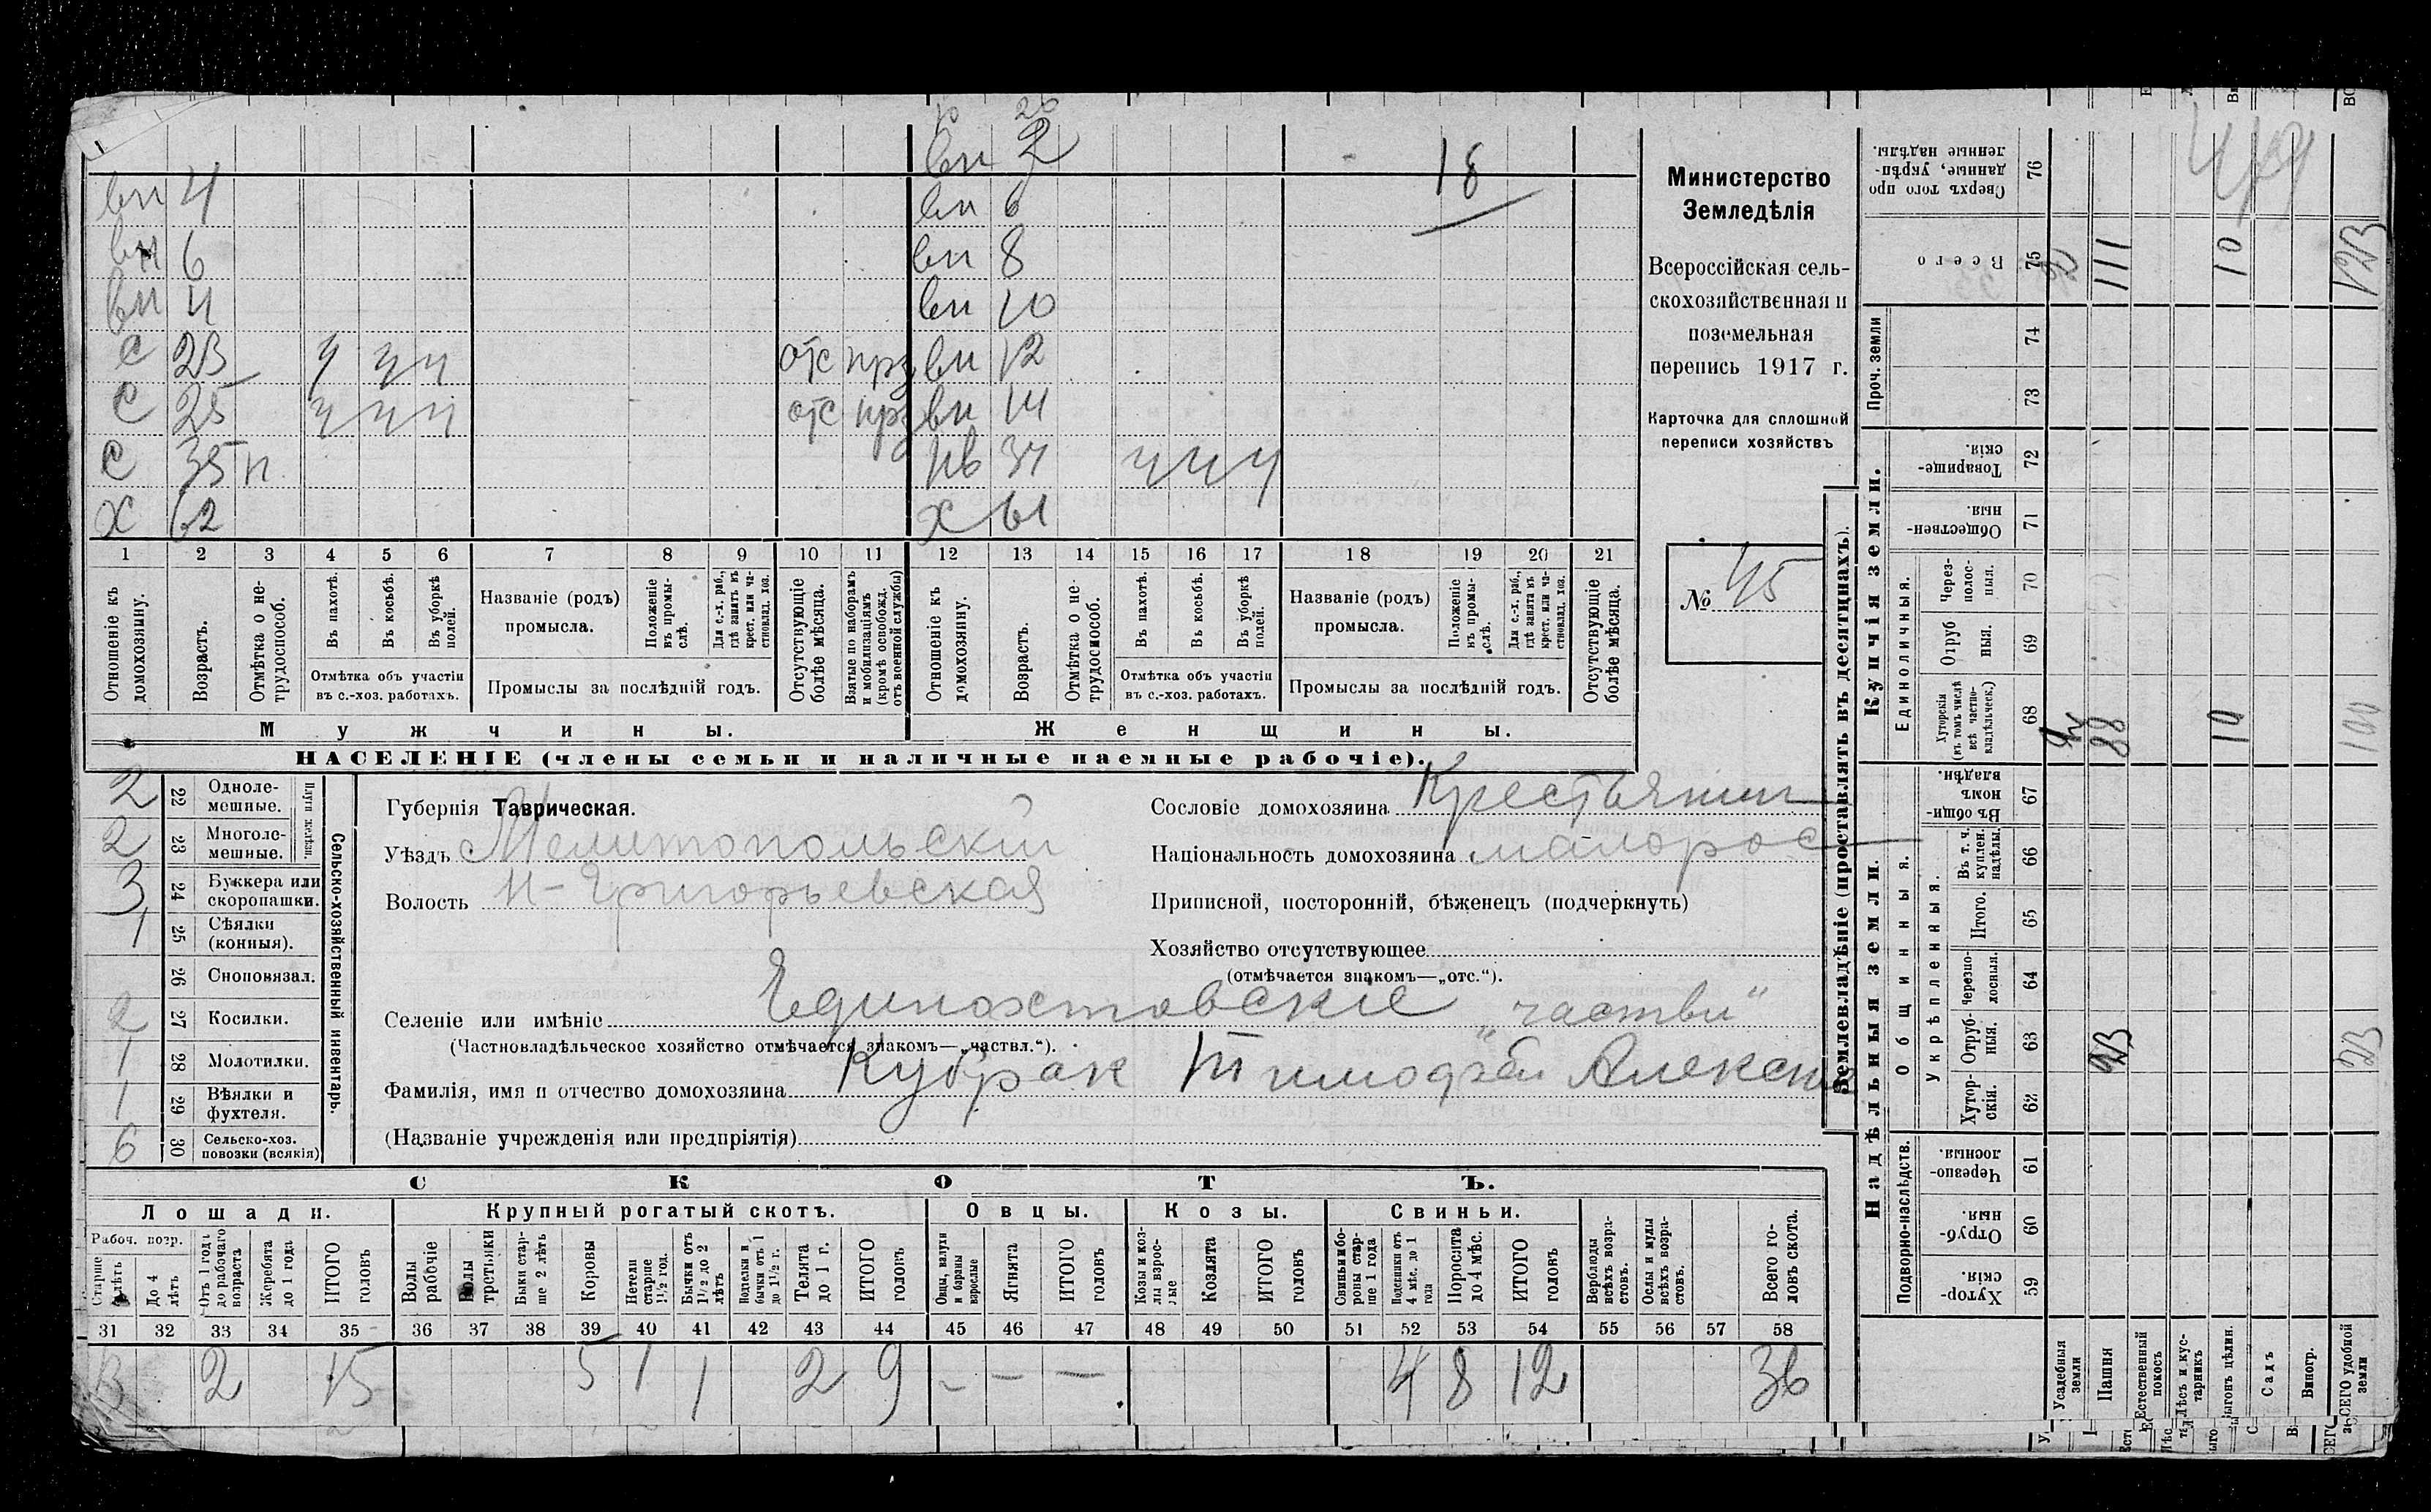 вн 2
18
вн 4
вн 6
вн 6
вн 8
вн 4
вн 10
с 23 ч ч ч отс прз
вн 12
с 25 ч ч ч отс прз
вн 14
с 35 н
нв 34 ч ч ч
х 62
х 61
1 2 3 4 5 6 7 8 9 10 11 12 13 14 15 16 17 18 19 20 21
Отношеніе къ домохозяину.
Возрастъ.
Отмѣтка о нетрудоспособ.
Въ пахотѣ.
Въ косьбѣ.
Въ уборкѣ полей.
Отмѣтка объ участіи въ с.-хоз. работахъ.
Названіе (родъ) промысла.
Положеніе въ промыслѣ.
Для с.-х. раб., гдѣ занятъ въ крест. или частновлад. хоз.
Промыслы за послѣдній годъ.
Отсутствующіе болѣе мѣсяца.
Взятые по наборамъ и мобилизаціямъ (кромѣ освобожд. отъ военной службы)
Отношеніе къ домохозяину.
Возрастъ.
Отмѣтка о нетрудоспособ.
Въ пахотѣ.
Въ косьбѣ.
Въ уборкѣ полей.
Отмѣтка объ участіи въ с.-хоз. работахъ.
Названіе (родъ) промысла.
Положеніе въ промыслѣ.
Для с.-х. раб., гдѣ занята въ крест. или частновлад. хоз.
Промыслы за послѣдній годъ.
Отсутствующіе болѣе мѣсяца.
Мужчины.
Женщины.
НАСЕЛЕНІЕ (члены семьи и наличные наемные рабочіе).
Министерство
Земледѣлія
Всероссійская сель-
скохозяйственная и
поземельная
перепись 1917 г.
Карточка для сплошной
переписи хозяйствъ
№ 45
Сельско-хозяйственный инвентарь.
Плуги желѣзн.
2 22 Одноле-мешные.
2 23 Многоле-мешные.
3 24 Буккера или скоропашки.
1 25 Сѣялки (конныя).
26 Сноповязал.
2 27 Косилки.
1 28 Молотилки.
1 29 Вѣялки и фухтеля.
6 30 Сельско-хоз. повозки (всякія)
Губернія Таврическая.
Уѣздъ Мелитопольскій
Волость Н-Григорьевская
Сословіе домохозяина Крестьянин
Національность домохозяина малорос
Приписной, посторонній, бѣженецъ (подчеркнуть)
Хозяйство отсутствующее
(отмѣчается знакомъ—„отс.“).
Селеніе или имѣніе „частвл“
(Частновладѣльческое хозяйство отмѣчается знакомъ—„частвл.“).
Фамилія, имя и отчество домохозяина Кубрак Тимофей Алексѣ
(Названіе учрежденія или предпріятія)
СКОТЪ.
Лошади. Крупный рогатый скотъ. Овцы. Козы. Свиньи.
Рабоч. возр.
Старше 4 лѣтъ
До 4 лѣтъ
Отъ 1 года до рабочаго возраста
Жеребята до 1 года
ИТОГО головъ
Волы рабочіе
Волы третьяки
Быки старше 2 лѣтъ
Коровы
Нетели старше 1½ год.
Бычки отъ 1½ до 2 лѣтъ
Телки и бычки отъ 1 до 1½ г.
Телята до 1 г.
ИТОГО головъ
Овцы, валухи и бараны взрослые
Ягнята
ИТОГО головъ
Козы и козлы взрослые
Козлята
ИТОГО головъ
Свиньи и боровы старше 1 года
Подсвинки отъ 4 мѣс. до 1 года
Поросята до 4 мѣс.
ИТОГО головъ
Верблюды всѣхъ возрастовъ.
Ослы и мулы всѣхъ возрастовъ.
Всего головъ скота.
31 32 33 34 35 36 37 38 39 40 41 42 43 44 45 46 47 48 49 50 51 52 53 54 55 56 57 58
13 2 15 5 1 1 2 9 – – – 4 8 12 36
Землевладѣніе (проставлять въ десятинахъ).
Купчія земли.
Надѣльныя земли.
Сверхъ того проданные, укрѣпленные надѣлы. 76
Всего 75 111 10 123
Проч. земли 74 73
Товарищескія. 72
Общественныя. 71
Единоличныя.
Черезполосныя. 70
Отрубныя. 69
Хуторскія (въ томъ числѣ всѣ частновладѣльческ.) 68 2 88 10 100
Общинныя.
Въ общинномъ владѣн. 67
Укрѣпленныя.
Въ т. ч. куплен. надѣлы. 66
Итого. 65
Черезполосныя. 64
Отрубныя. 63 23 23
Хуторскія. 62
Подворно-наслѣдств.
Черезполосныя. 61
Отрубныя. 60
Хуторскія. 59
Усадебныя земли
Пашня
Естественный покосъ
Лѣсъ и кустарникъ
Выгонъ цѣлин.
Садъ
Виногр.
ВСЕГО удобной земли